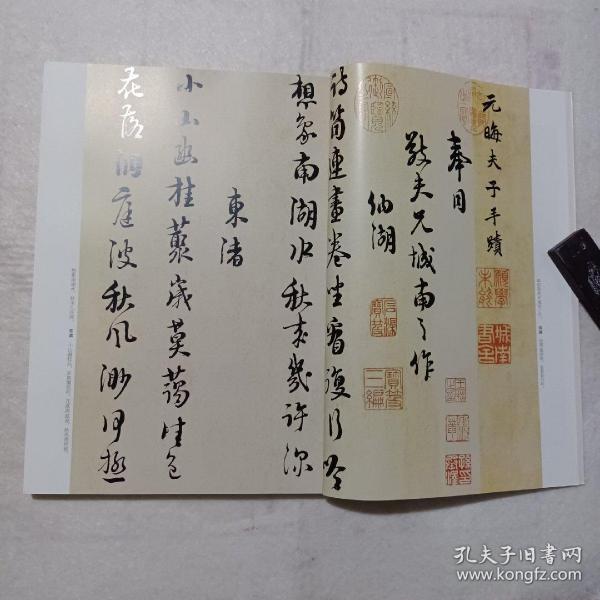 元晦夫子手蹟
奉同
敬夫兄城南之作
納湖
詩筒連畫卷坐看復行吟
想象南湖水秋來幾許深
東渚
小山幽桂叢歲莫藹佳色
花落洞庭波秋風渺何極
寶笈三編
孔夫子旧书网
www.kongfz.com